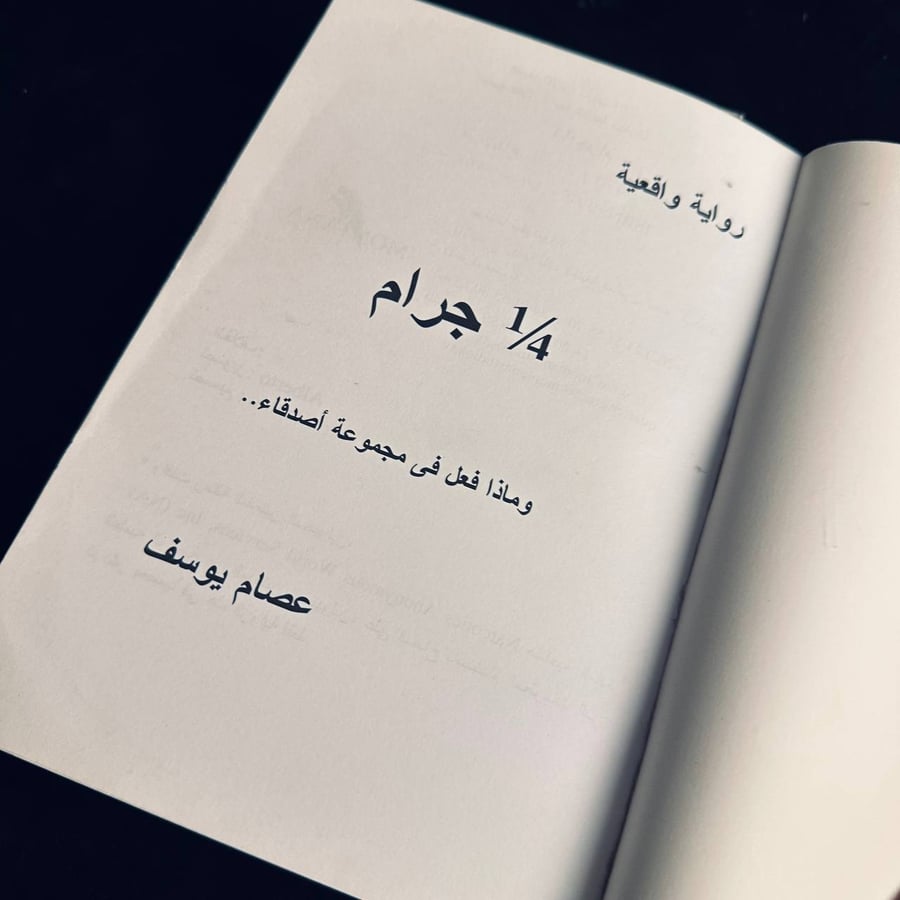 رواية واقعية
¼ جرام
وماذا فعل فى مجموعة أصدقاء..
عصام يوسف